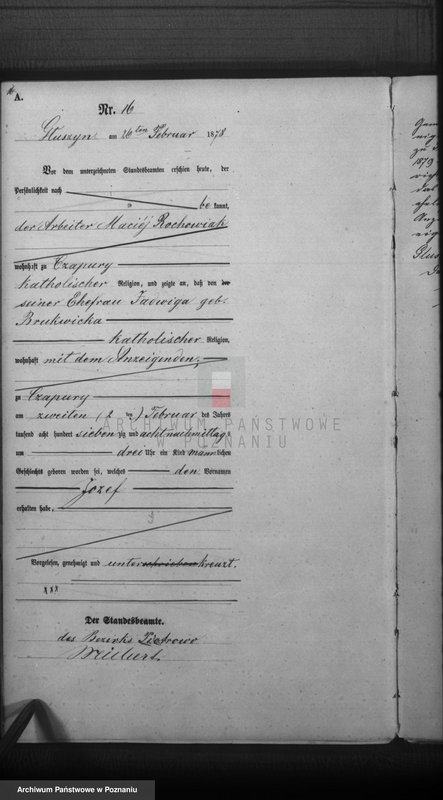 A.
Nr. 16
Gluszyn am 26ten Februar 1878
Vor dem unterzeichneten Standesbeamten erschien heute, der
Persönlichkeit nach
be kannt,
der Arbeiter Maciéj Rochowiak
wohnhaft zu Czapury
katholischer Religion, und zeigte an, daß von der
seiner Ehefrau Jadwiga geb.
Brukwicka
katholischer Religion,
wohnhaft mit dem Anzeigenden,
zu Czapury
am zweiten (2 ten) Februar des Jahres
tausend acht hundert sieben zig und acht nachmittags
um drei Uhr ein Kind männlichen
Geschlechts geboren worden sei, welches den Vornamen
Jozef
erhalten habe,
Vorgelesen, genehmigt und unterschrieben kreuzt.
xxx
Der Standesbeamte.
des Bezirks Piotrowo
ARCHIWUM PAŃSTWOWE
W POZNANIU
1879
das
Archiwum Państwowe w Poznaniu